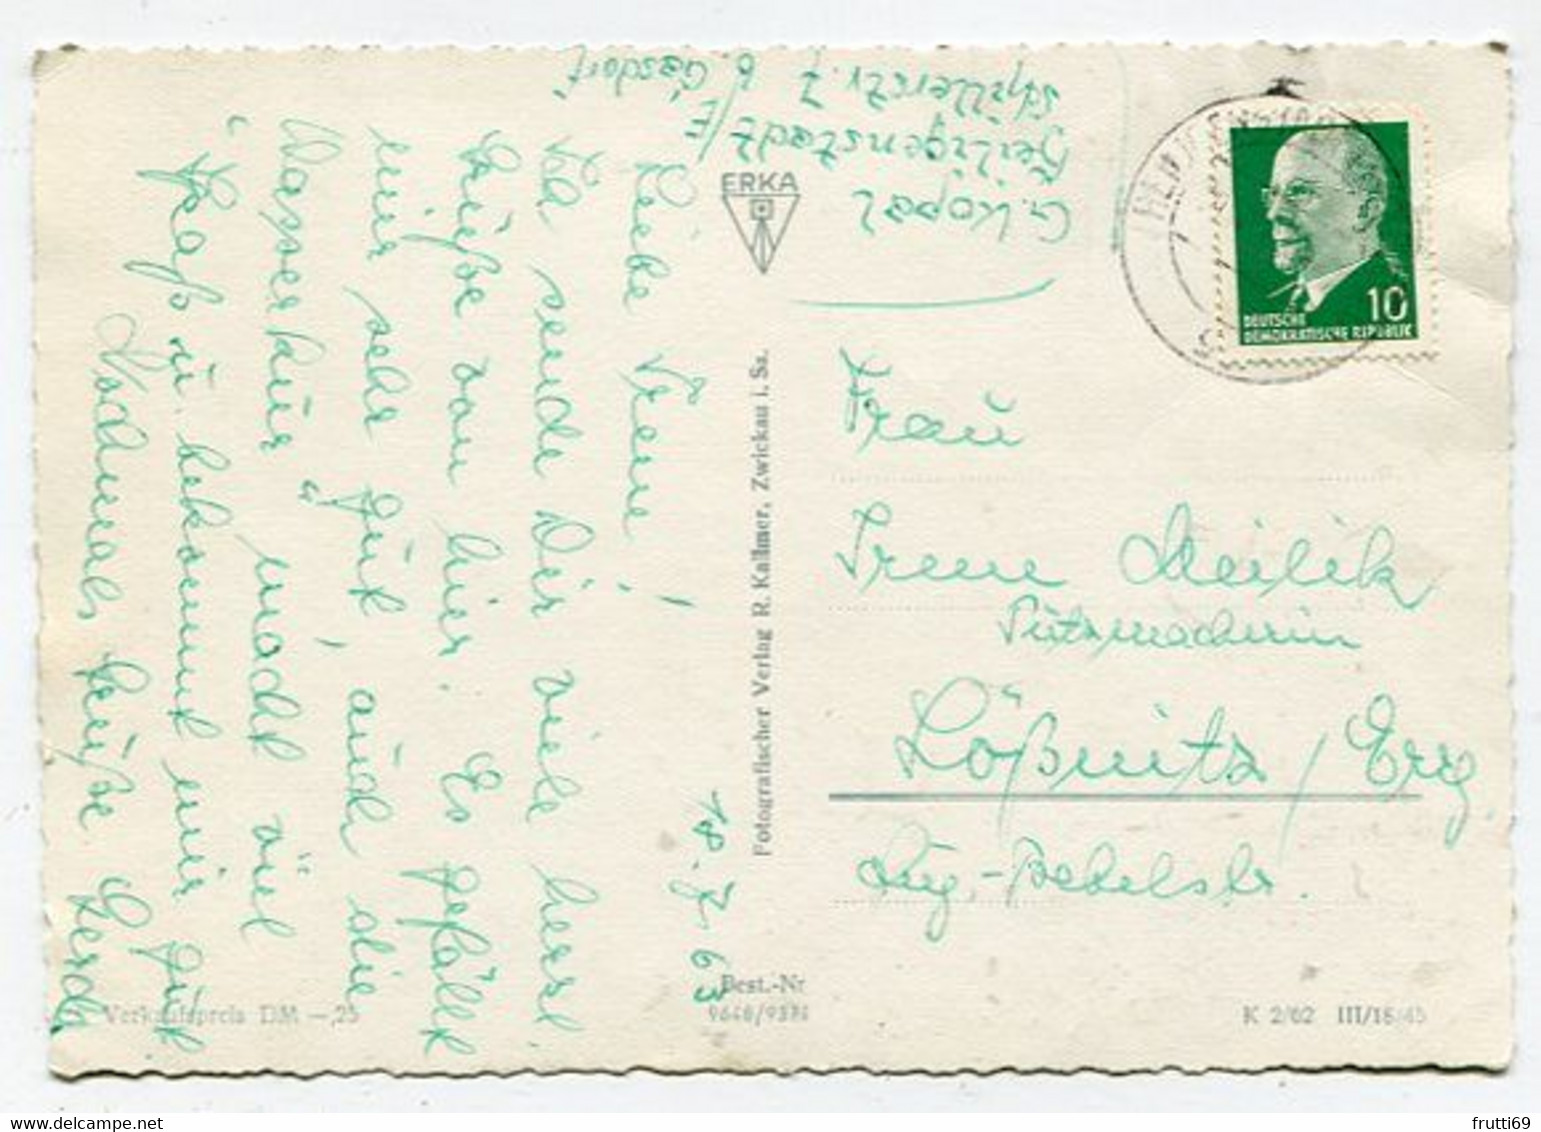 18. 7. 63
Liebe Irene!
Ich sende Dir viele herzl.
Grüße von hier. Es gefällt
mir sehr gut, auch die
"Wasserkur" macht viel
Spaß u. bekommt mir gut
Nochmals Grüße Gerda
G. Kopal
Heiligenstadt/E
Schillerstr. 7
b. Gasdorf
ERKA
Fotografischer Verlag R. Kallmer, Zwickau i. Sa.
DEUTSCHE
DEMOKRATISCHE REPUBLIK
10
Frau
Irene Meilik
Putzmacherin
Lößnitz/Erzg.
Aug.-Bebelstr.
Verkaufspreis DM -,25
Best.-Nr
K 2/62 III/18/45
frutti69